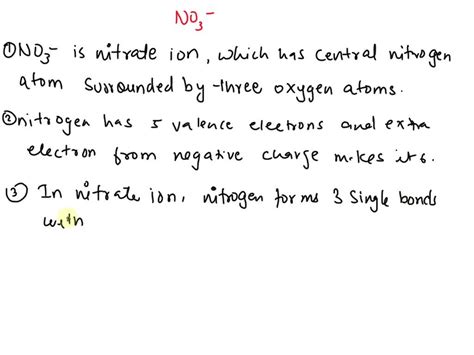 NO₃⁻
① NO₃⁻ is nitrate ion, which has central nitrogen
atom surrounded by three oxygen atoms.
② nitrogen has 5 valence electrons and extra
electron from negative charge makes it 6.
③ In nitrate ion, nitrogen forms 3 single bonds
with